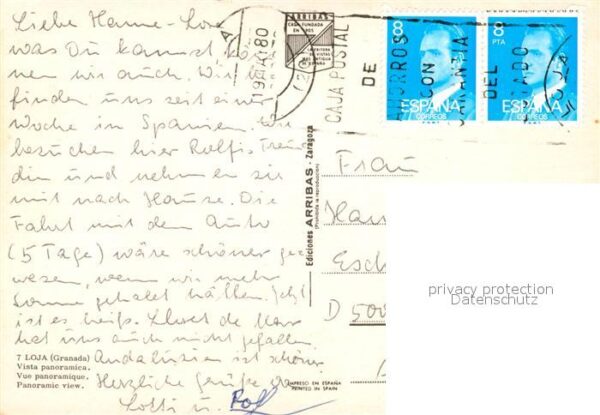 Liebe Hanne-Lore
was Du kannst kön-
nen wir auch. Wir be-
finden uns seit einer
Woche in Spanien. Wir
besuchen hier Rolfis Freun
din und nehmen sie
mit nach Hause. Die
Fahrt mit dem Auto
(5 Tage) wäre schöner ge-
wesen, wenn wir mehr
Sonne gehabt hätten. Jetzt
ist es heiß. Lloret de Mar
hat uns auch nicht gefallen.
Andalusien ist schöner
Herzliche Grüße
Lotti u. Rolf
7 LOJA (Granada)
Vista panoramica.
Vue panoramique.
Panoramic view.
IMPRESO EN ESPAÑA
PRINTED IN SPAIN
Ediciones ARRIBAS - Zaragoza
(Prohibida la reproducción)
ARRIBAS
CASA FUNDADA
EN 1905
CAJA POSTAL
DE
AHORROS
CON
GARANTIA
DEL
ESTADO
80
LOJA
8
PTA
ESPAÑA
CORREOS
8
PTA
ESPAÑA
CORREOS
Frau
Han
Esch
D 500
privacy protection
Datenschutz